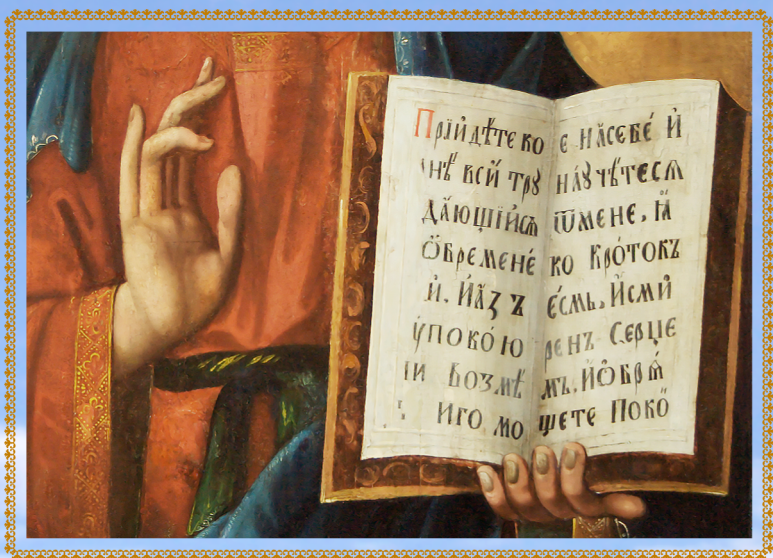 Прїйдѣте ко
нѣ всй трꙋ
да́ющїйсѧ
Ѡ҆бремене́
й. Й а҆з ъ
у҆поко́ю
и Возмѣ
Иго мо
е на̀себе́ Й
на́ꙋчѣтесѧ
ѿмене, ꙗ҆
ко Кро́токъ
е҆́смь, Й҆сми̇
ренъ Серце
мъ, И҆ ѡ҆брѧ́
щете Поко̆